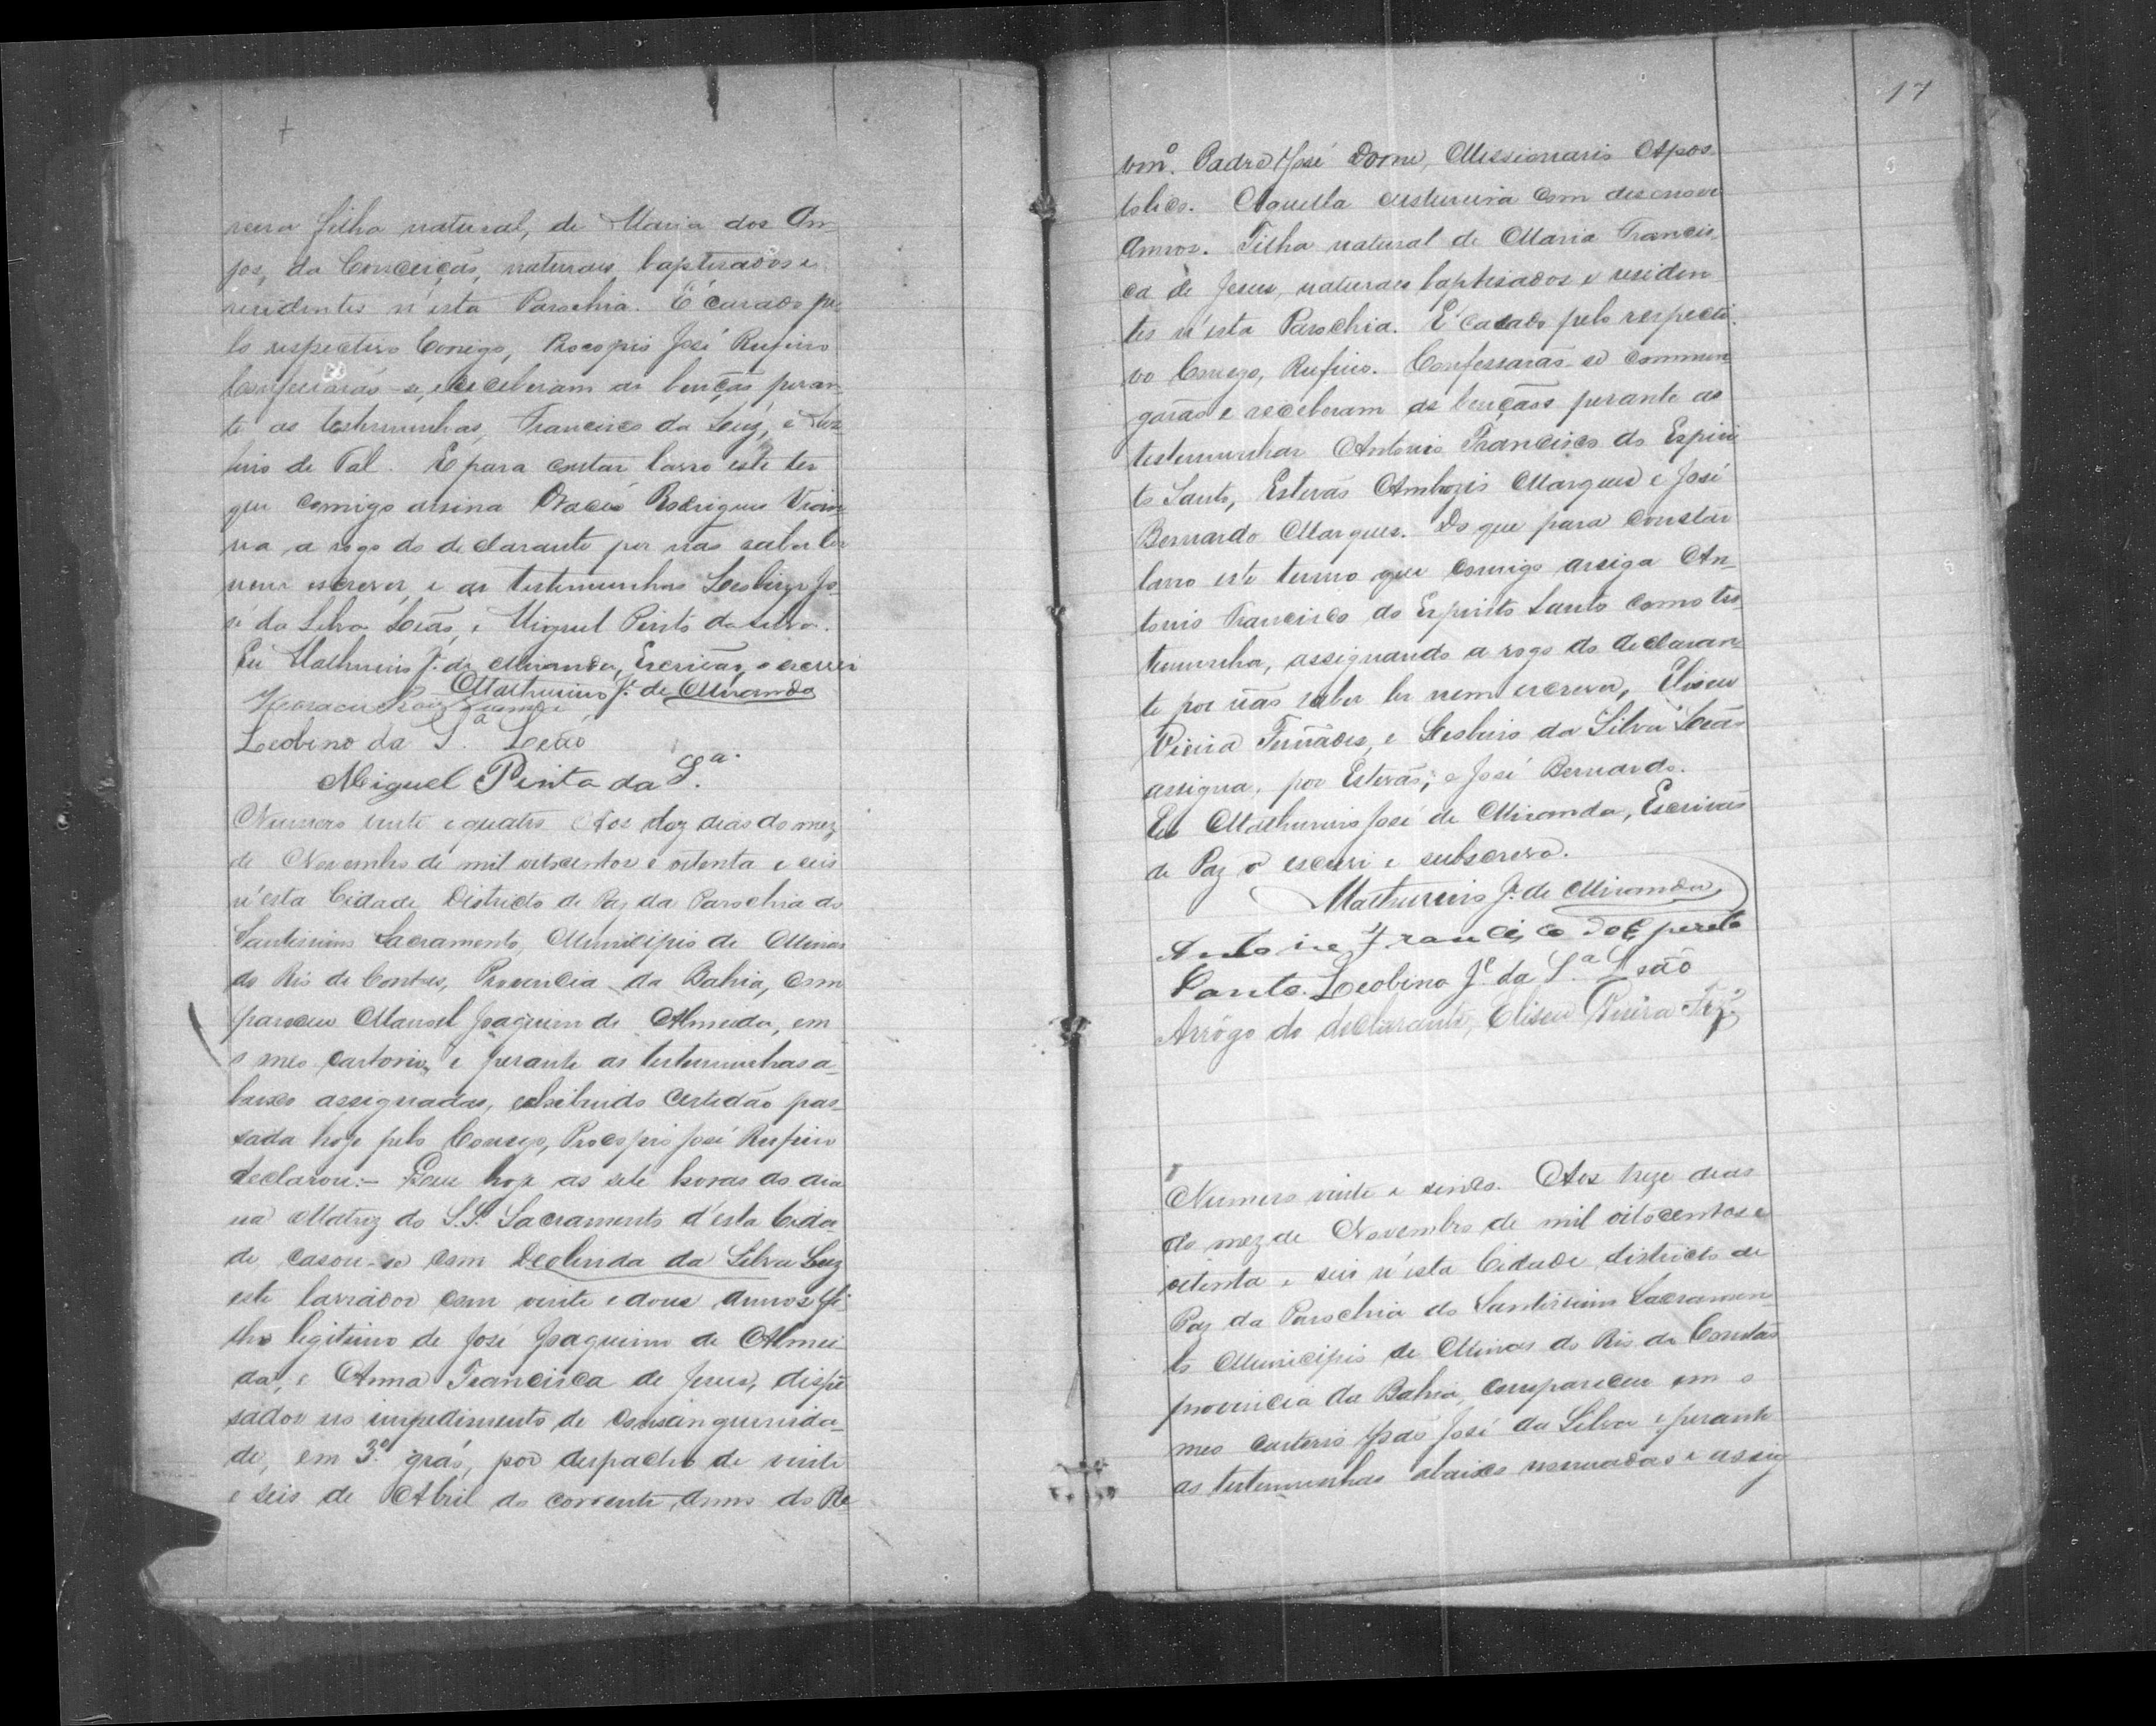 reira filha natural, de Maria dos An-
jos, da Conceição, naturaes baptisados e
residentes n'esta Parochia. É casado pe-
lo respectivo Conego, Procopio José Rufino
Confessarão-se, e receberam as bençãs peran-
te as testemunhas, Francisco da Luz, e
de Tal. E para constar lavro este ter
que comigo assina Rodrigues
a rogo do declarante por não saber ler
nem escrever, e as testemunhas Leobino Jo-
sé da Silva Leão, e Miguel Pinto da Silva.
Eu Mathurino J.e de Miranda, Escrivão, o escrevi
Mathurino J.e de Miranda
Leobino da S.a Leão
Miguel Pinto da S.a
Numero vinte e quatro Aos doz dias do mez
de Novembro de mil oitocentos e oitenta e seis
n'esta Cidade Districto de Paz da Parochia do
Santissimo Sacramento, Municipio de Minas
do Rio de Contas, Provincia da Bahia, com
pareceu Manoel Joaquim de Almeida, em
o meo cartorio, e perante as testemunhas a-
baixo assignadas, exhibindo certidão pas-
sada hoje pelo Conego, Procopio José Rufino
declarou:- Que hoje as sete horas do dia
na Matriz do S.S. Sacramento d'esta Cida
de casou-se com Deolinda da Silva Luz
este lavrador com vinte e dous annos fi-
lho legitimo de José Joaquim de Almei-
da, e Anna Francisca de Jesus, dispē
sados no impedimento de consanguinida-
de, em 3.º gráo, por despacho de vinte
e seis de Abril do corrente anno do Re-
17
vm.º Padre José Dorme, Missionario Apos-
tolico. Aquella custureira com desenove
Annos. Filha natural de Maria Francis-
ca de Jesus, naturaes baptisados e residen
tes n'esta Parochia. É casado pelo respecti-
vo Conego, Rufino. Confessarão-se commun
garão e receberam as bençãos perante as
testemunhas Antonio Francisco do Espiri
to Santo, Estevão Ambozio Marques e José
Bernardo Marques. Do que para constar
lavro este termo que comigo assiga An-
tonio Francisco do Espirito Santo como tes-
temunha, assignando a rogo do declaran-
te por não saber ler nem escrever, Eliseu
Vieira Fernādes, e Leobino da Silva Leão
assigna, por Estevão, e José Bernardo.
Eu Mathurino José de Miranda, Escrivão
de Paz o escrevi e subscrevo.
Mathurino J.e de Miranda
Antonio Francisco do Esperito
Santo. Leobino J.e da S.a Leão
Arrôgo do declarante, Eliseu Vieira Frz.
Numero vinte e sinco. Aos treze dias
do mez de Novembro de mil oitocentos e
oitenta e seis n'esta Cidade districto de
Paz da Parochia do Santissimo Sacramen-
to Municipio de Minas do Rio de Contas
provincia da Bahia, compareceu em o
meo cartorio João José da Silva e perante
as testemunhas abaixo nomeadas e assig